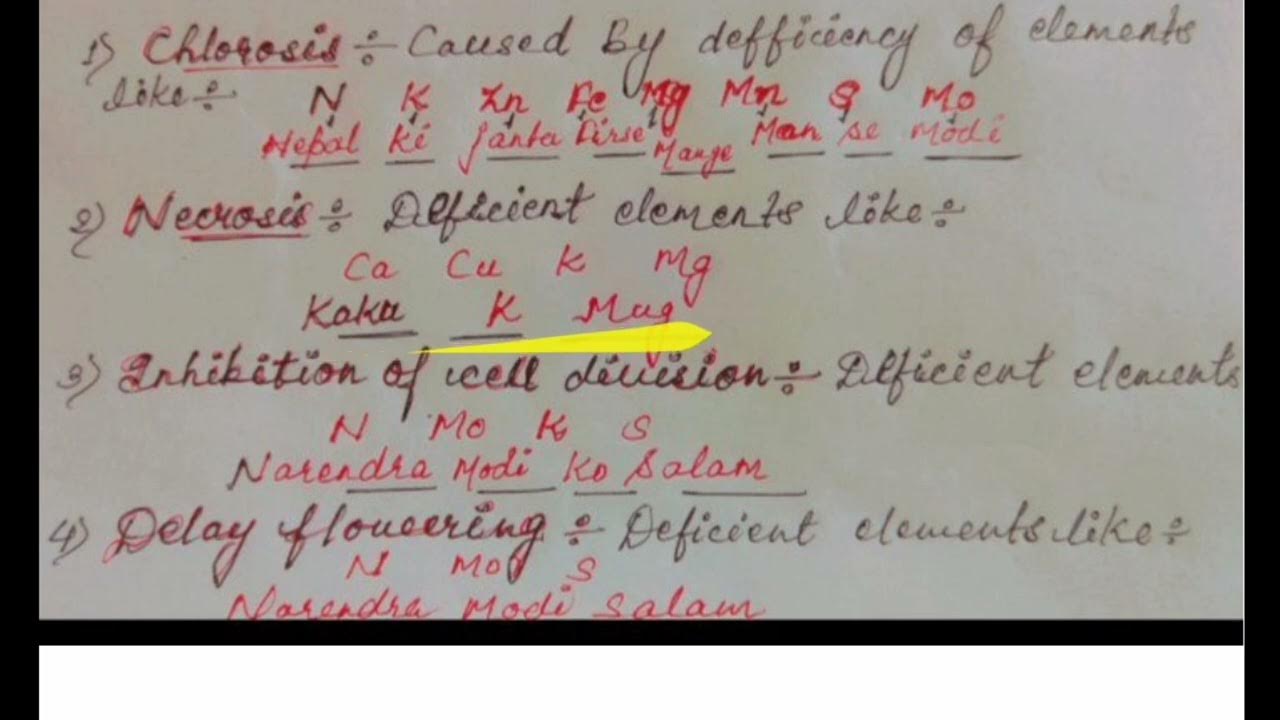 1) Chlorosis ÷ Caused By defficiency of elements
like ÷ N K Zn Fe Mg Mn S Mo
Nepal Ki Janta Firse Mange Man se Modi
2) Necrosis ÷ Deficient elements like ÷
Ca Cu K Mg
Kaku K Mug
3) Inhibition of cell division ÷ Deficient elements
N Mo K S
Narendra Modi Ko Salam
4) Delay flowering ÷ Deficient elements like ÷
N Mo S
Narendra Modi Salam